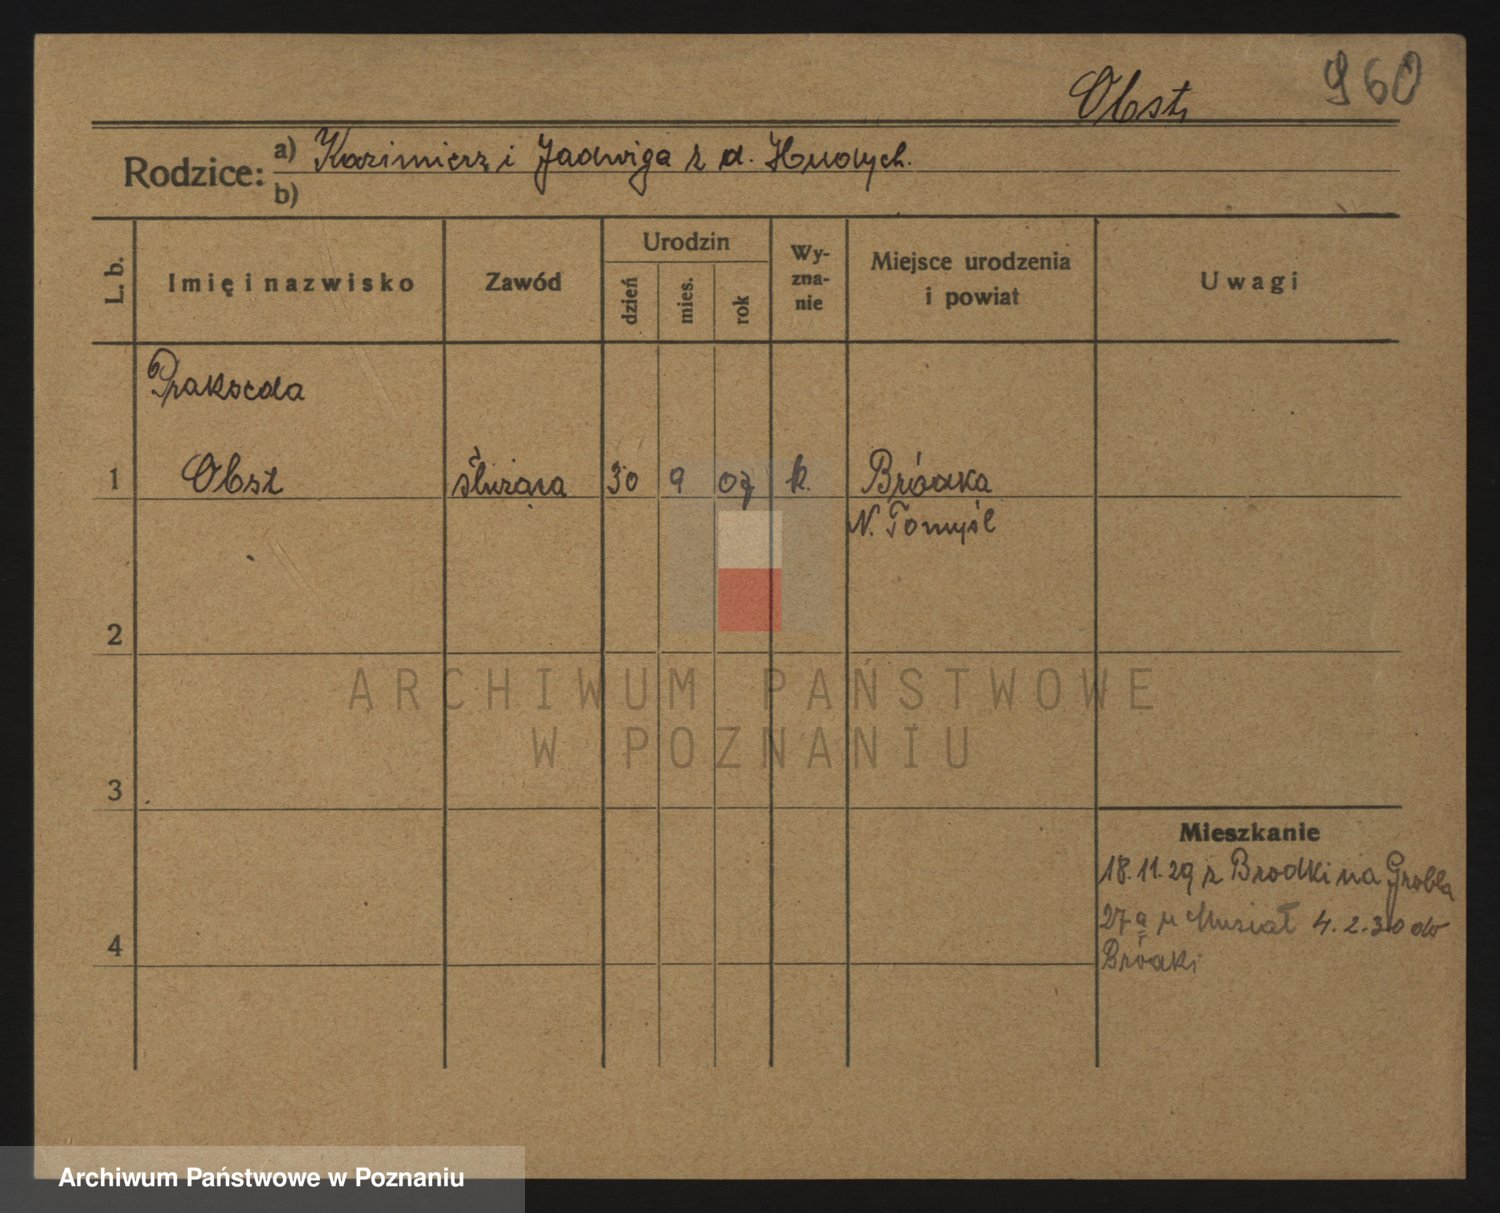 960
Obst
Rodzice: a) Kazimierz i Jadwiga z d.
b)
L. b.
Imię i nazwisko
Zawód
Urodzin
dzień
mies.
rok
Wy-
zna-
nie
Miejsce urodzenia
i powiat
Uwagi
Prakseda
1 Obst służąca 30 9 07 k. Bródka
N. Tomyśl
2
ARCHIWUM PAŃSTWOWE
W POZNANIU
3
Mieszkanie
18.11.29 z Brodki na Grobla
27a u Musiał 4.2.30 do
Bródki
4
Archiwum Państwowe w Poznaniu